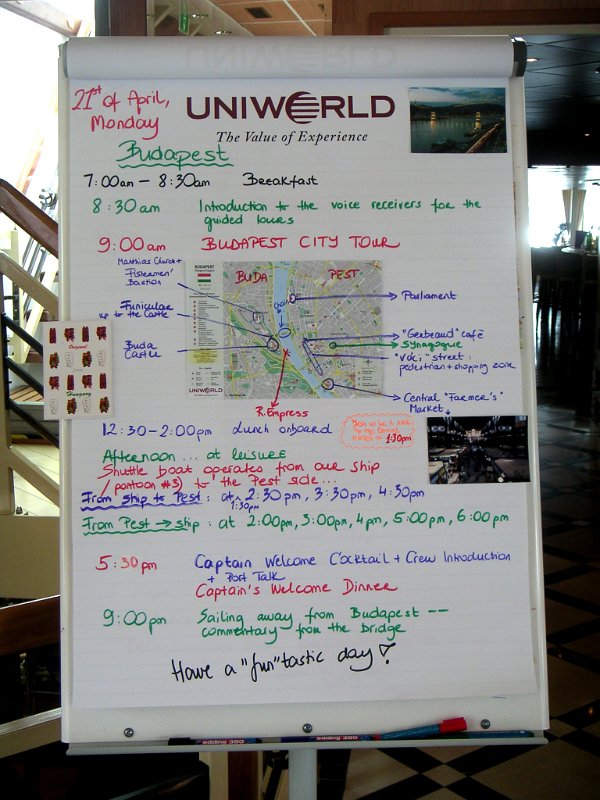 21st of April,
Monday
UNIWORLD
The Value of Experience
Budapest
7:00am – 8:30am Breakfast
8:30am Introduction to the voice receivers for the
guided tours
9:00am BUDAPEST CITY TOUR
Matthias Church +
Fishermen'
Bastion
BUDAPEST
BUDA PEST
Chain
Parliament
Funiculae
up to the Castle
"Gerbeaud" café
Synagogue
Buda
Castle
"Váci" street:
pedestrian + shopping zone
Original
Hungary
UNIWORLD
Central "Farmer's"
Market
R. Empress
12:30–2:00pm Lunch onboard
1:30pm
Afternoon... at leisure
Shuttle boat operates from our ship
/pontoon #3) to the Pest side...
From ship to Pest: at 2:30pm, 3:30pm, 4:30pm
1:30pm
From Pest → ship: at 2:00pm, 3:00pm, 4pm, 5:00pm, 6:00pm
5:30pm Captain Welcome Cocktail + Crew Introduction
+ Port Talk
Captain's Welcome Dinner
9:00pm Sailing away from Budapest --
commentary from the bridge
Have a "fun"tastic day!
edding 380 edding 380